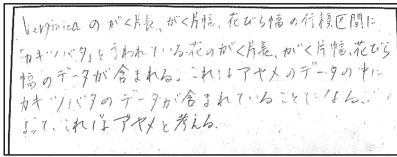 Verginicaのがく片長、がく片幅、花びら幅の信頼区間に
「カキツバタ」と言われている花のがく片長、がく片幅、花びら
幅のデータが含まれる。これはアヤメのデータの中に
カキツバタのデータが含まれていることになる。
よって、これはアヤメと考える。